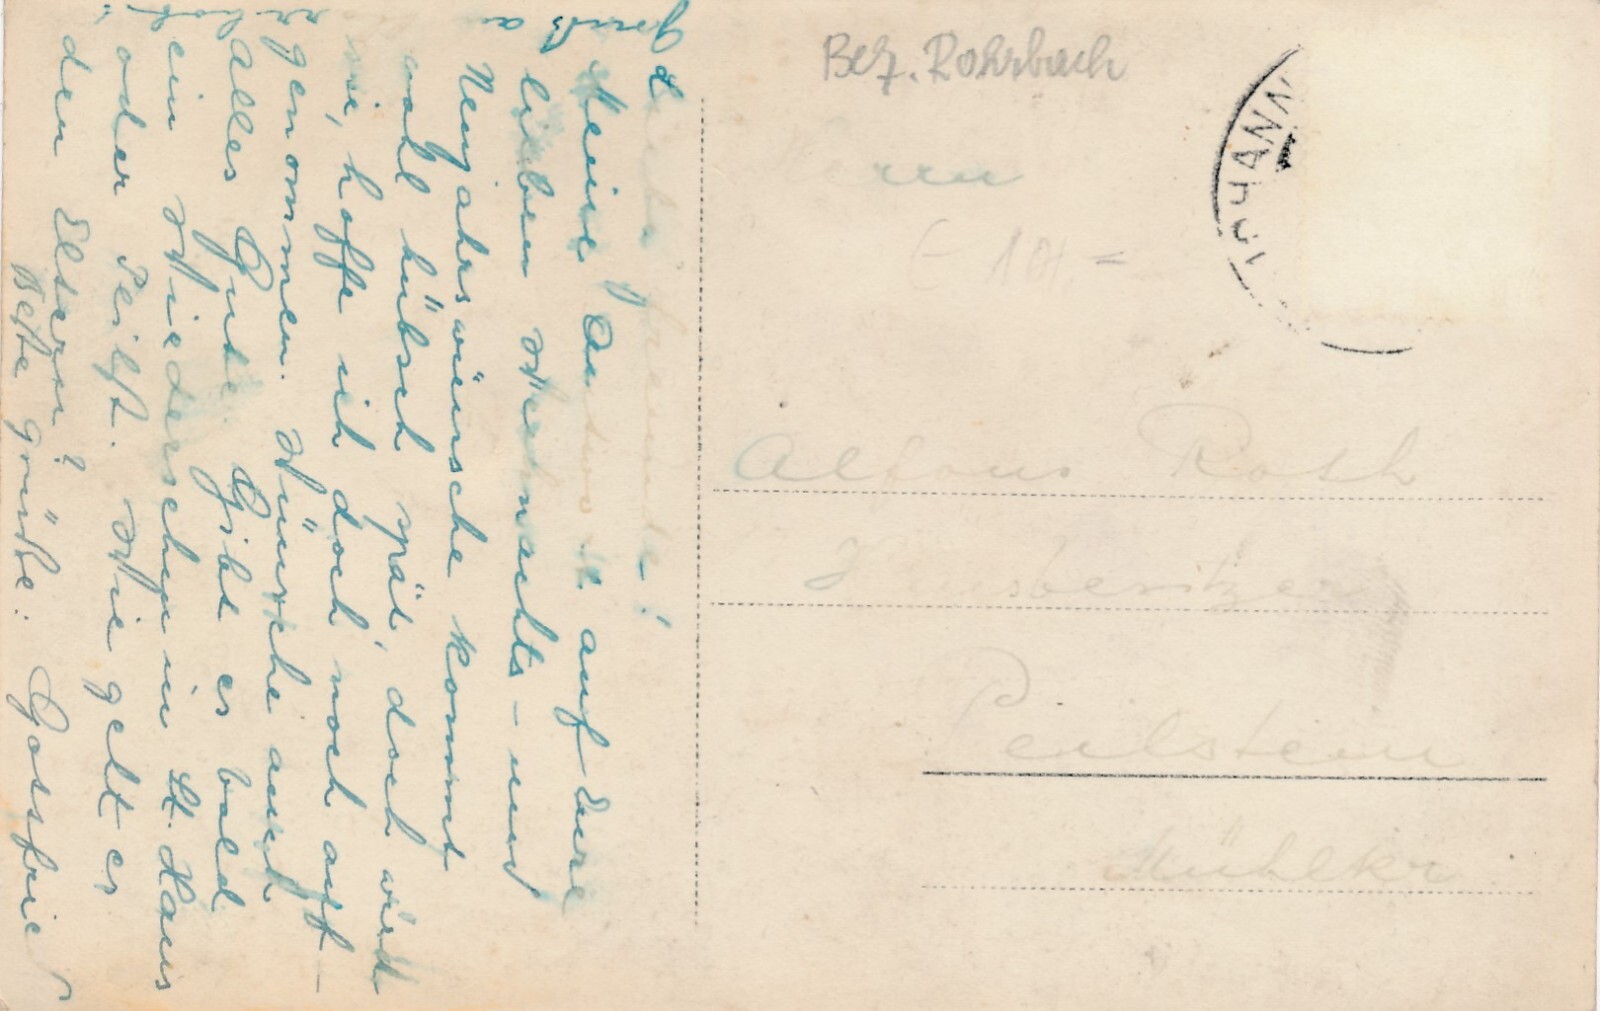 Liebe Freunde!
Meine Antwort auf Eure
lieben Weihnachts- und
Neujahrswünsche kommt
wohl hübsch spät, doch wird
sie, hoffe ich doch noch auf-
genommen. Wünsche auch
alles Gute. Gibt es bald
ein Wiedersehen in St. Haus
oder Peilst. Wie geht es
den Eltern?
Beste Grüße. Gottfried
Bez. Rohrbach
Herrn
Alfons Roth
Hausbesitzer
Peilstein
Mühlkr